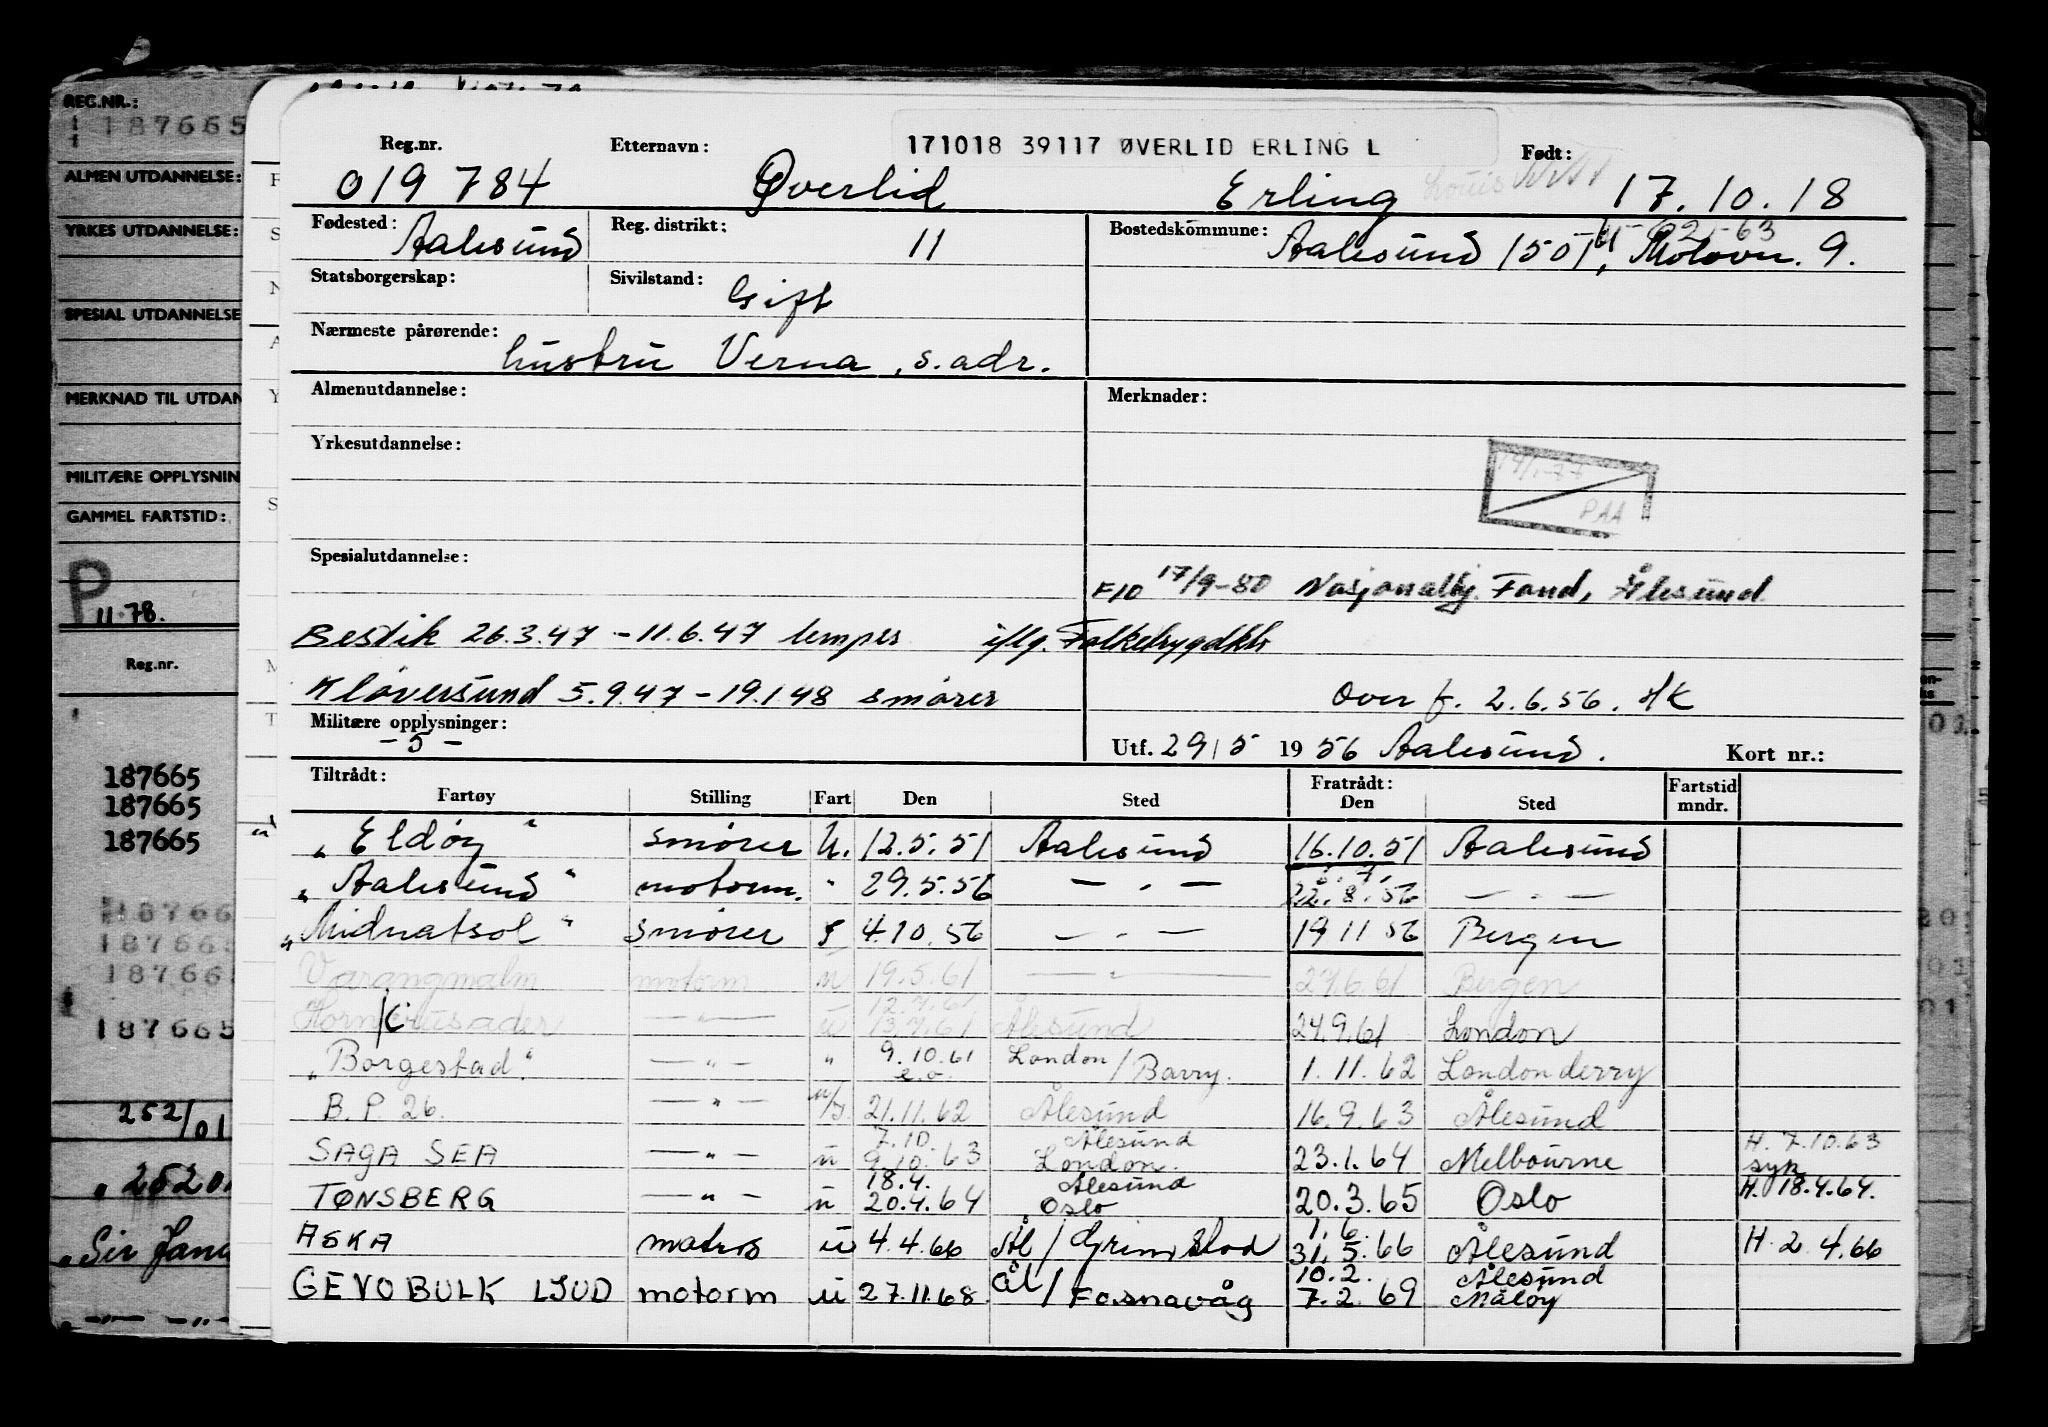 REG.NR.:
187665
ALMEN UTDANNELSE:
YRKES UTDANNELSE:
SPESIAL UTDANNELSE
MERKNAD TIL UTDAN
MILITÆRE OPPLYSNIN
GAMMEL FARTSTID:
P
11.78.
Reg.nr.
187665
187665
187665
18766
18766
18766
187665
252/01
"2520
"Sir
Reg.nr. Etternavn: 171018 39117 ØVERLID ERLING L Født:
019 784 Øverlid Erling Louis 17.10.18
Fødested: Aalesund Reg. distrikt: 11 Bostedskommune: Aalesund 1501, 9.
Statsborgerskap: Sivilstand: Gift
Nærmeste pårørende: hustru Verna, s. adr.
Almenutdannelse: Merknader:
Yrkesutdannelse:
PAA
Spesialutdannelse:
F10 17/9-80 Nasjonalby. Fond, Ålesund
Bestik 26.3.47 - 11.6.47 lemper iflg.
Kløversund 5.9.47 - 19.1.48 smører Over f. 2.6.56.
Militære opplysninger: - 5 -
Utf. 29/5 1956 Aalesund. Kort nr.:
Tiltrådt: Fratrådt: Fartstid
Fartøy Stilling Fart Den Sted Den Sted mndr.
"Eldøy" smører U. 12.5.51 Aalesund 16.10.51 Aalesund
"Aalesund" motorm. " 29.5.56 — " — 22.8.56 — " —
"Midnatsol" smører 4.10.56 — " — 19 11 56 Bergen
Varangmalm motorm u 19.5.61 — " — 27.6.61 Bergen
Horn Crusader — " — u 12.7.61 13.7.61 Ålesund 24.9.61 London
"Borgestad" — " — " 9.10.61 e.o. London / Barry. 1.11.62 Londonderry
B.P. 26. — " — 21.11.62 Ålesund 16.9.63 Ålesund
SAGA SEA — " — u 7.10. 9.10.63 Ålesund London. 23.1.64 Melbourne H. 7.10.63 syk
TØNSBERG — " — u 18.4. 20.4.64 Ålesund Oslo 20.3.65 Oslo H. 18.4.64.
ASKA matros u 4.4.66 Ål / Grimstad 1.6. 31.5.66 Ålesund H. 2.4.66
GEVOBULK LJUD motorm u 27.11.68. Ål / Fosnavåg 10.2. 7.2.69 Ålesund Måløy